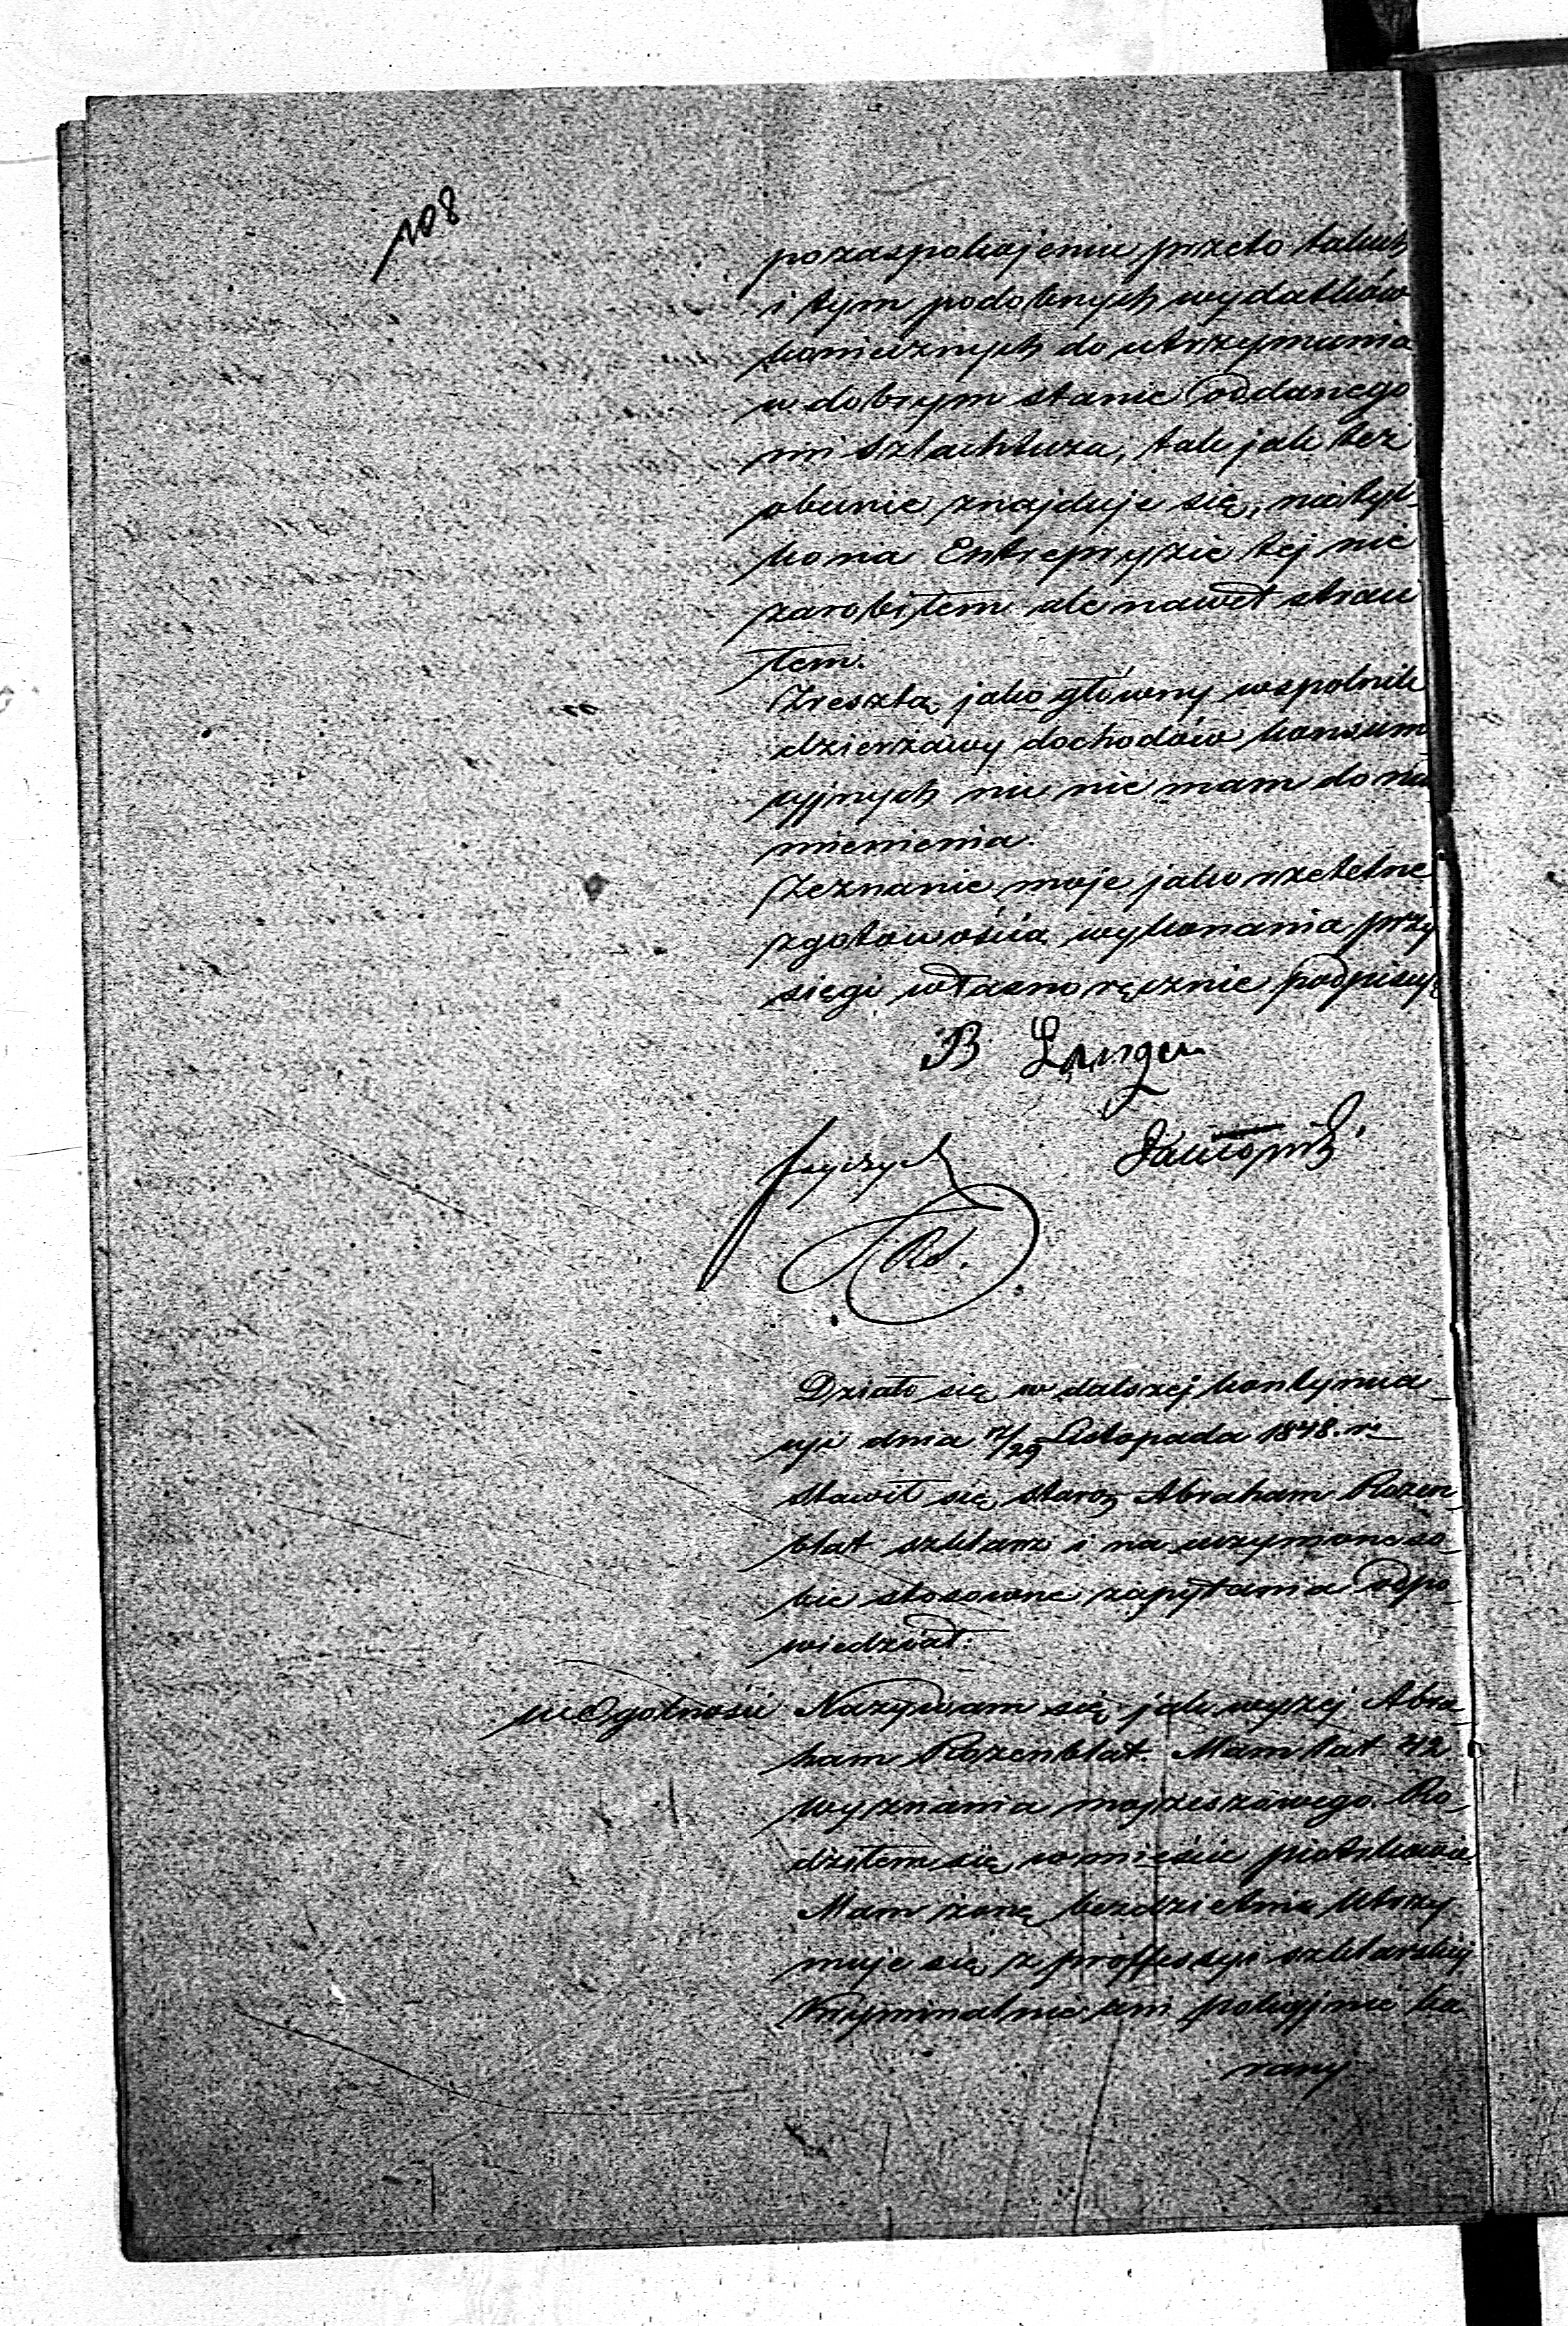 108
pozaspokojeniu przeto takich
i tym podobnych wydatków
koniecznych do utrzymania
w dobrym stanie oddanego
mi szlachtuza, tak jak też
obecnie znajduje się, nietyl-
ko na Entrepryzie tej nie
zarobiłem ale nawet straci
łem.
Zresztą jako główny wspolnik
dzierzawy dochodów konsum-
cyjnych nic nie mam do nad
mienienia.
Zeznanie moje jako rzetelne
z gotowością wykonania przy
sięgi własnoręcznie podpisuję
B Langer
Rd.
Działo się w dalszej kontynua-
cyi dnia 17/29 Listopada 1848. r.
Stawił się staroz Abraham Rozen-
blat szklarz i na uczynione so-
bie stosowne zapytania odpo-
wiedział.
w Ogólności Nazywam się jak wyzej Abra-
ham Rozenblat. Mam lat 42
wyznania mojzeszowego. Ro-
dziłem się w mieście piotrkowie
Mam zonę bezdzietnie utrzy-
muje się z proffessyi szklarskiej
Kryminalnie ani policyjnie ka-
rany